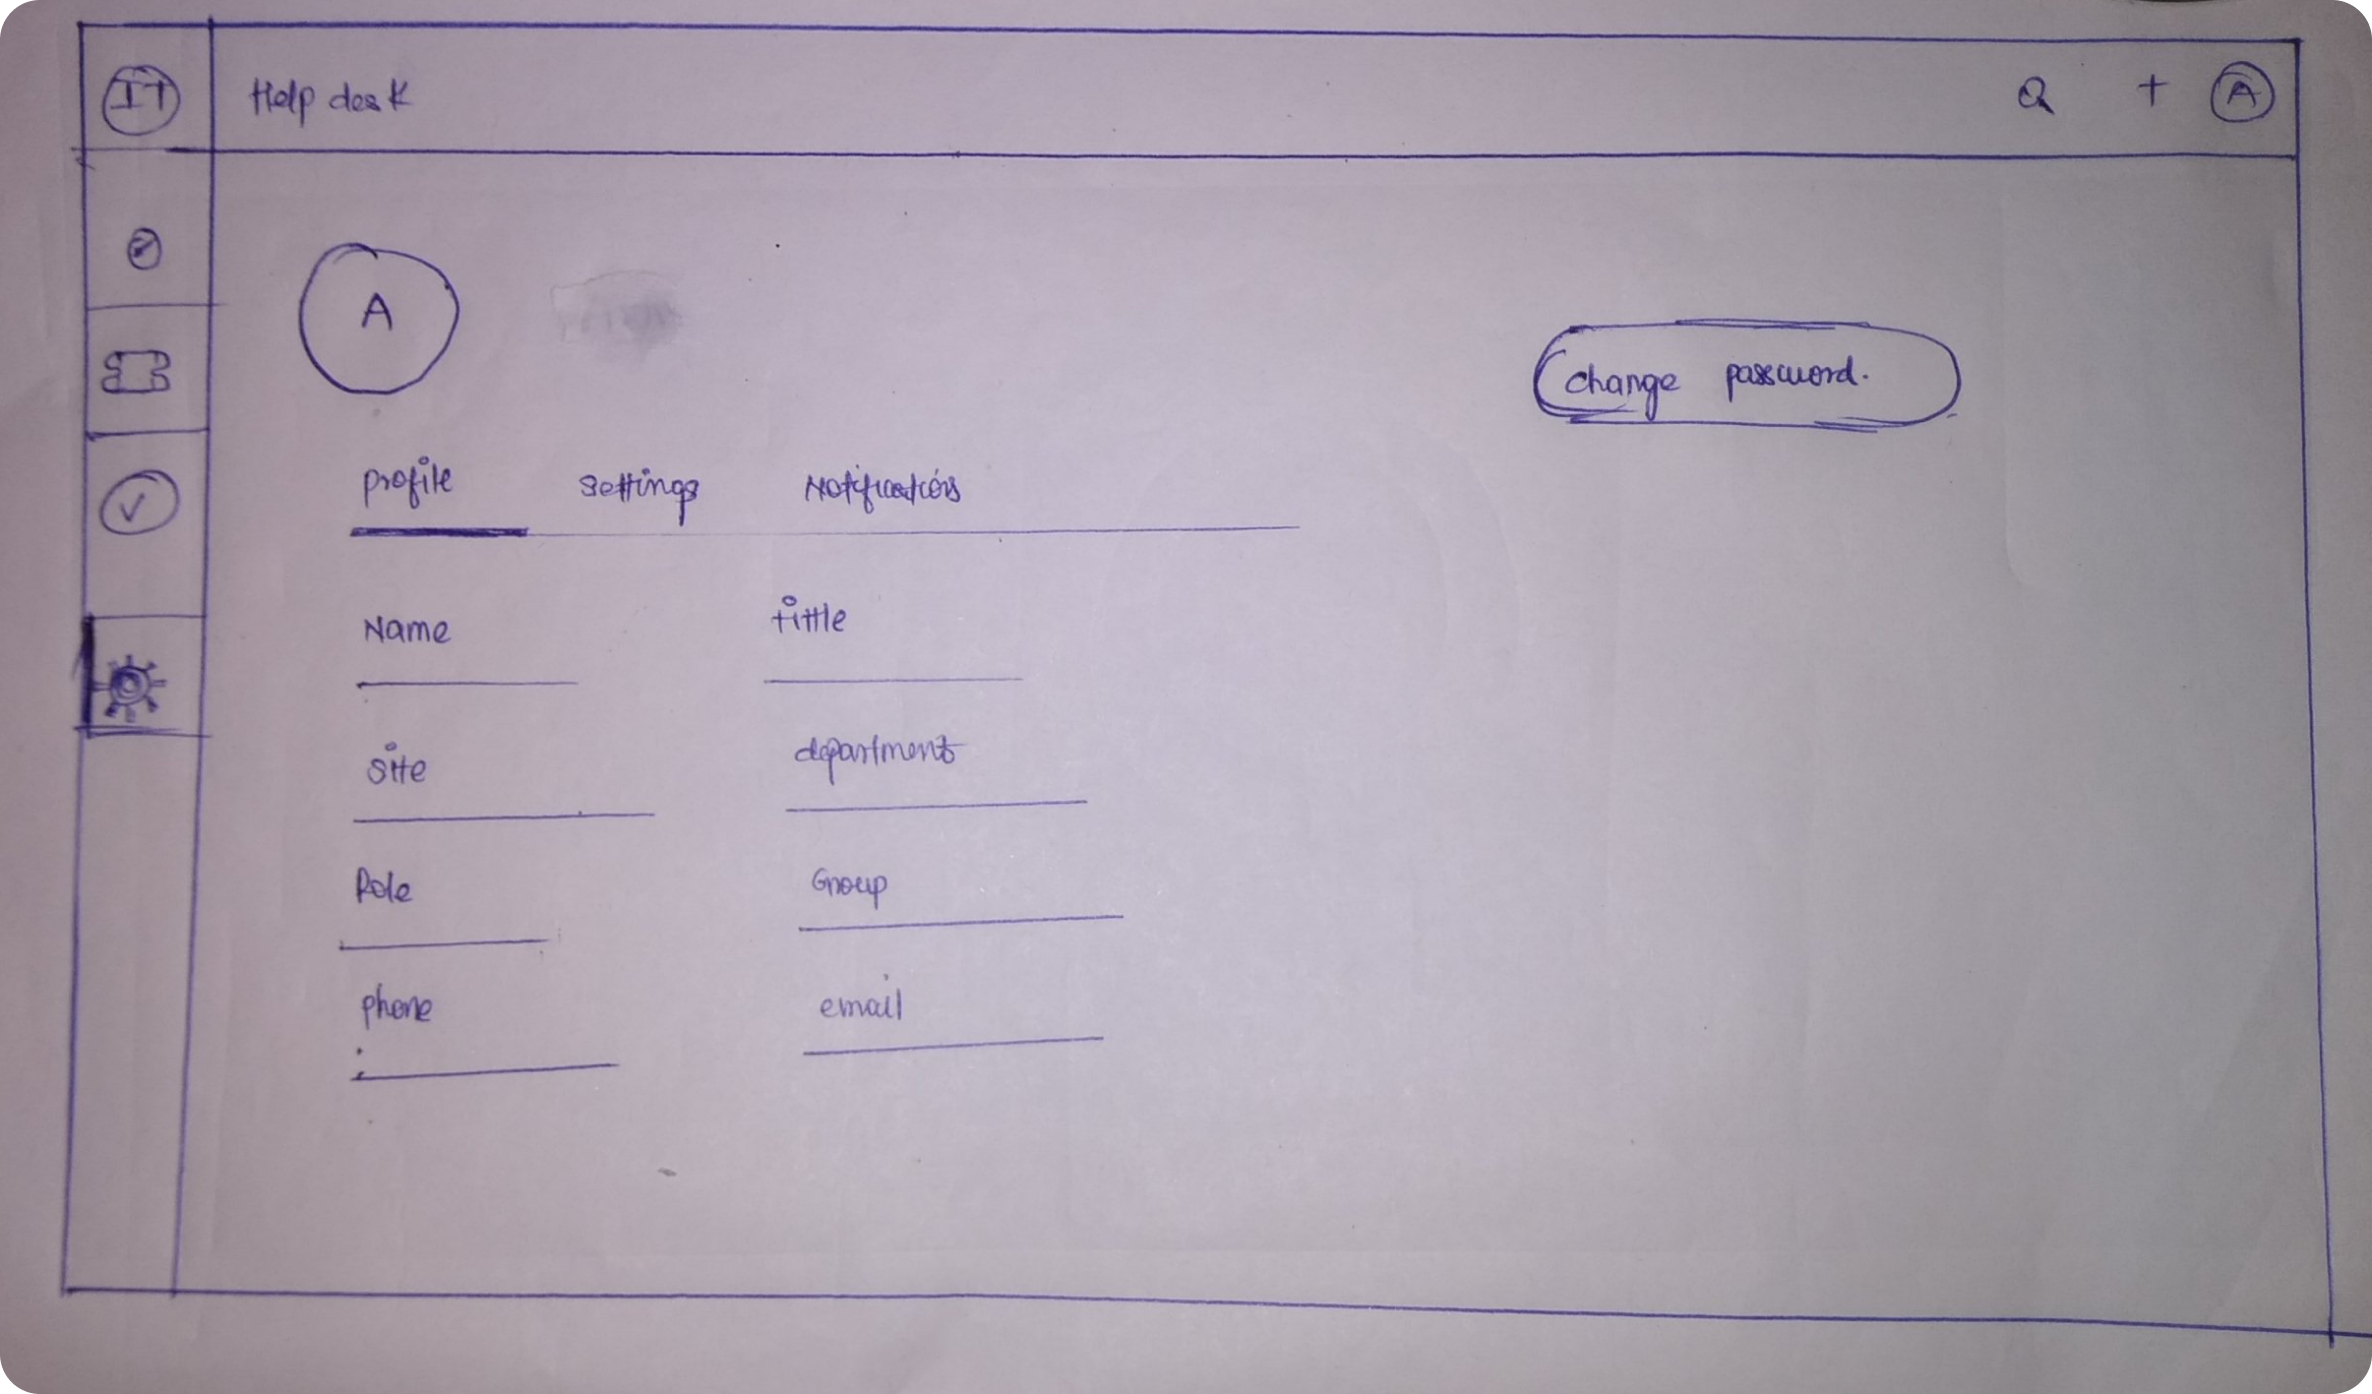 IT Help desk Q + A
A
change password.
profile settings Notifications
Name tittle
site department
Role Group
phone email